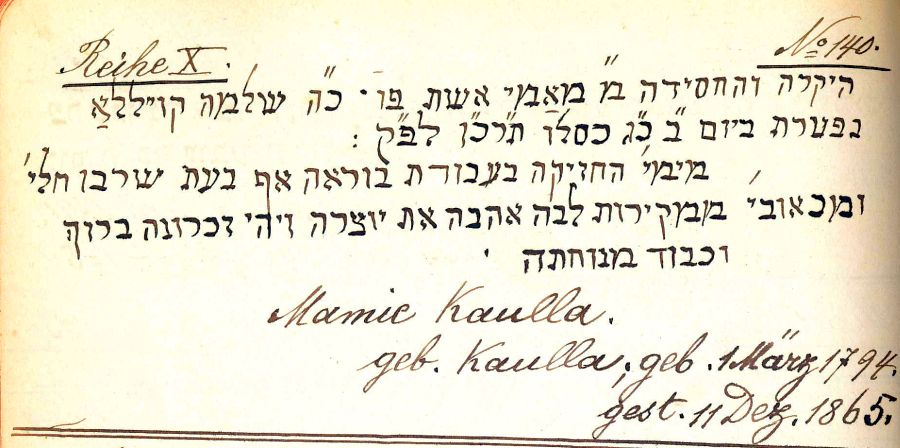 Reihe X. No 140.
היקרה והחסידה מ״ מאַמי אשת פו״ כ״ה שלמה קויללאַ
נפטרת ביום ב״ כ״ג כסלו ת״רכ״ו לפ״ק :
מימי׳ החזיקה בעבודת בוראה אף בעת שרבו חלי׳
ומכאובי׳ ממקירות לבה אהבה את יוצרה ויהי זכרונה ברוך
וכבוד מנוחתה .
Mamie Kaulla.
geb. Kaulla, geb. 1 März 1794.
gest. 11 Dez. 1865.